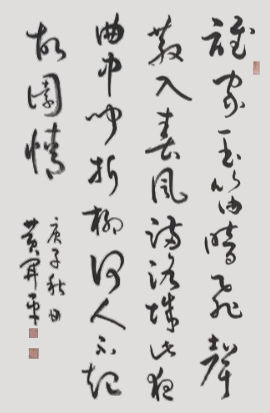 誰家玉笛暗飛聲
散入春風滿洛城此夜
曲中聞折柳何人不起
故園情
庚子秋
黄